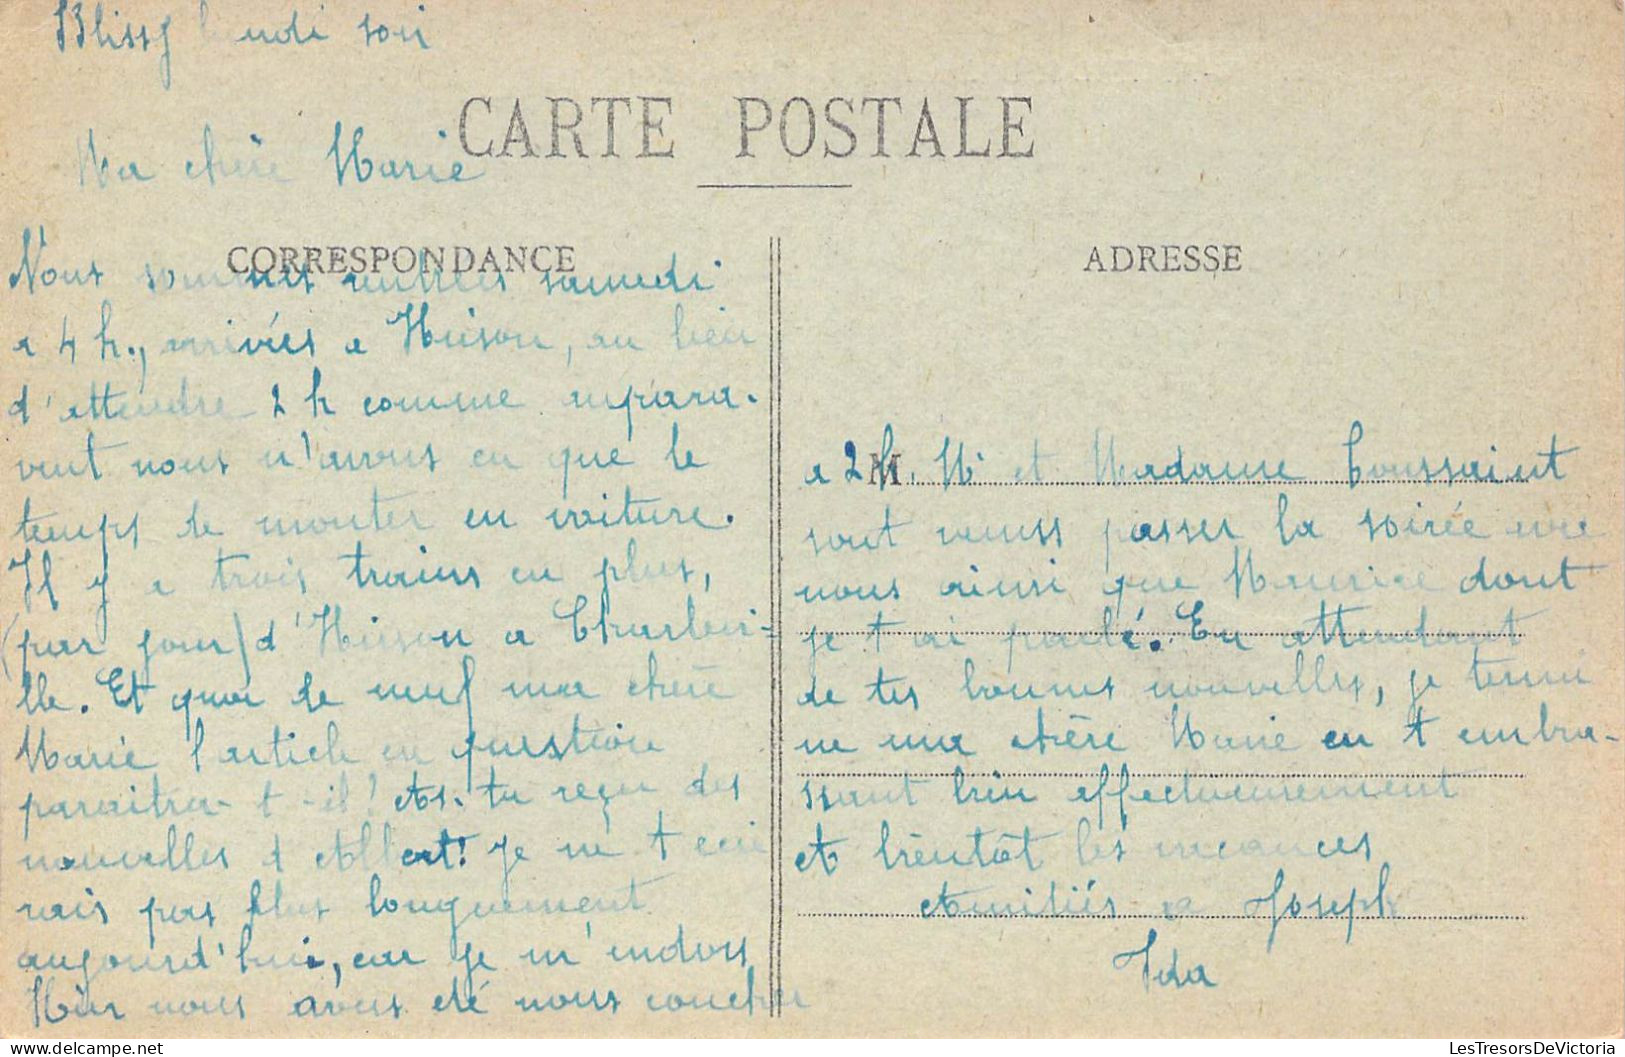 Blissy lundi soir
CARTE POSTALE
Ma chère Marie
CORRESPONDANCE
Nous sommes rentrées samedi
a 4 h., arrivés a Hirson, au lieu
d'attendre 2 h comme aupara-
vant nous n'avons eu que le
temps de monter en voiture.
Il y a trois trains en plus,
(par jour) d'Hirson a Charlevi-
lle. Et quoi de neuf ma chère
Marie l'article en question
paraitra-t-il! As-tu reçu des
nouvelles d'Albert! Je ne t'écri
rais pas plus longuement
aujourd'hui, car je m'endors
Hier nous avons été nous coucher
ADRESSE
a 2 h. M
Mr et Madame Toussaint
sont venus passer la soirée avec
nous ainsi que Maurice dont
je t'ai parlé. En attendant
de tes bonnes nouvelles, je termi
ne ma chère Marie en t'embra-
ssant bien affectueusement
A bientôt les vacances
Amitiés a Joseph
Ida
LesTresorsDeVictoria